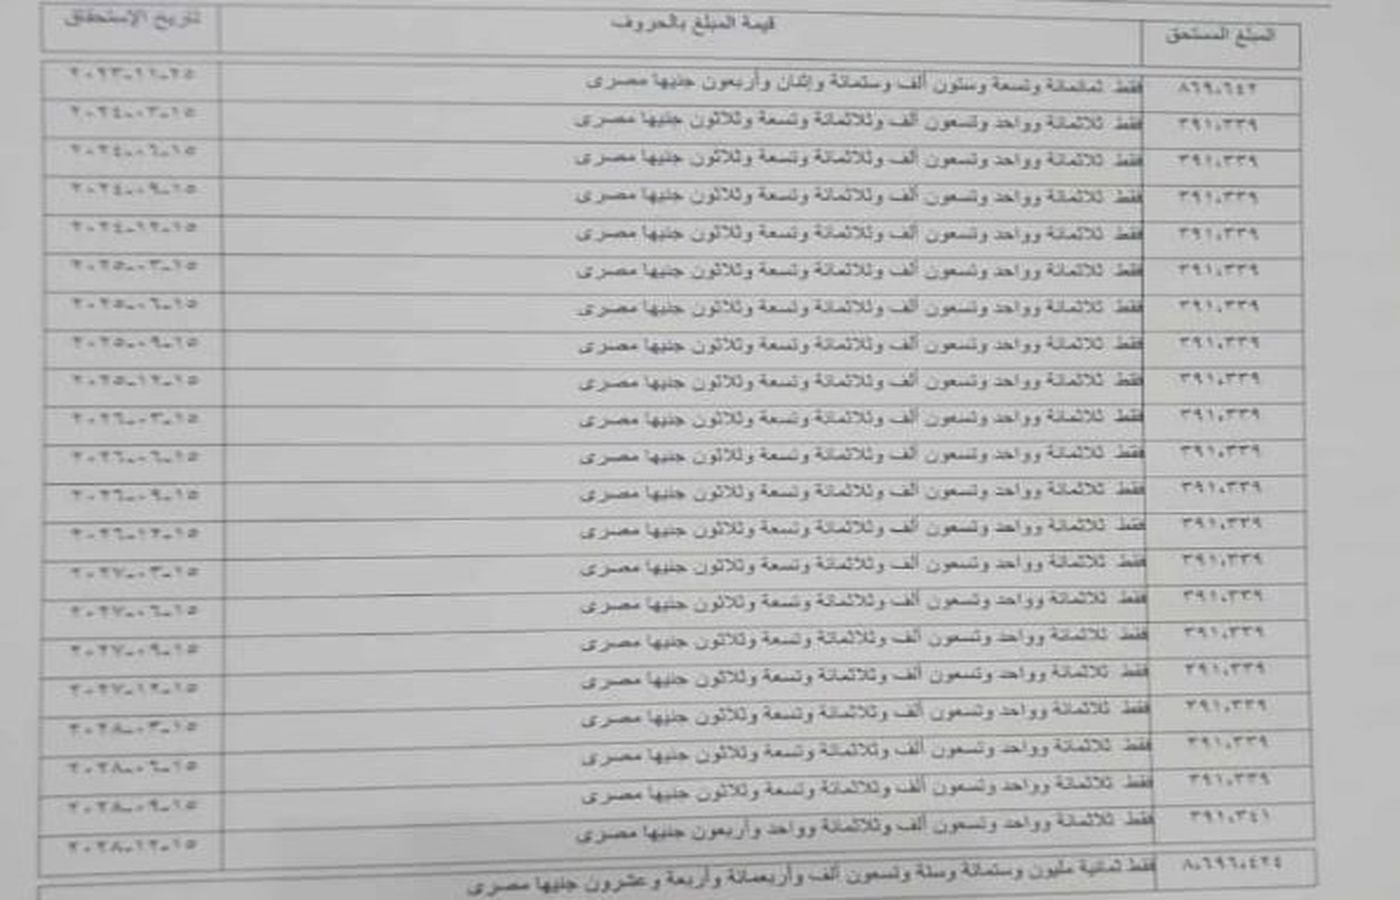 المبلغ المستحق قيمة المبلغ بالحروف تاريخ الإستحقاق
٨٦٩،٦٤٢ فقط ثمانمائة وتسعة وستون ألف وستمائة وإثنان وأربعون جنيها مصرى ٢٠٢٣-١١-٢٥
٣٩١،٣٣٩ فقط ثلاثمائة وواحد وتسعون ألف وثلاثمائة وتسعة وثلاثون جنيها مصرى ٢٠٢٤-٠٣-١٥
٣٩١،٣٣٩ فقط ثلاثمائة وواحد وتسعون ألف وثلاثمائة وتسعة وثلاثون جنيها مصرى ٢٠٢٤-٠٦-١٥
٣٩١،٣٣٩ فقط ثلاثمائة وواحد وتسعون ألف وثلاثمائة وتسعة وثلاثون جنيها مصرى ٢٠٢٤-٠٩-١٥
٣٩١،٣٣٩ فقط ثلاثمائة وواحد وتسعون ألف وثلاثمائة وتسعة وثلاثون جنيها مصرى ٢٠٢٤-١٢-١٥
٣٩١،٣٣٩ فقط ثلاثمائة وواحد وتسعون ألف وثلاثمائة وتسعة وثلاثون جنيها مصرى ٢٠٢٥-٠٣-١٥
٣٩١،٣٣٩ فقط ثلاثمائة وواحد وتسعون ألف وثلاثمائة وتسعة وثلاثون جنيها مصرى ٢٠٢٥-٠٦-١٥
٣٩١،٣٣٩ فقط ثلاثمائة وواحد وتسعون ألف وثلاثمائة وتسعة وثلاثون جنيها مصرى ٢٠٢٥-٠٩-١٥
٣٩١،٣٣٩ فقط ثلاثمائة وواحد وتسعون ألف وثلاثمائة وتسعة وثلاثون جنيها مصرى ٢٠٢٥-١٢-١٥
٣٩١،٣٣٩ فقط ثلاثمائة وواحد وتسعون ألف وثلاثمائة وتسعة وثلاثون جنيها مصرى ٢٠٢٦-٠٣-١٥
٣٩١،٣٣٩ فقط ثلاثمائة وواحد وتسعون ألف وثلاثمائة وتسعة وثلاثون جنيها مصرى ٢٠٢٦-٠٦-١٥
٣٩١،٣٣٩ فقط ثلاثمائة وواحد وتسعون ألف وثلاثمائة وتسعة وثلاثون جنيها مصرى ٢٠٢٦-٠٩-١٥
٣٩١،٣٣٩ فقط ثلاثمائة وواحد وتسعون ألف وثلاثمائة وتسعة وثلاثون جنيها مصرى ٢٠٢٦-١٢-١٥
٣٩١،٣٣٩ فقط ثلاثمائة وواحد وتسعون ألف وثلاثمائة وتسعة وثلاثون جنيها مصرى ٢٠٢٧-٠٣-١٥
٣٩١،٣٣٩ فقط ثلاثمائة وواحد وتسعون ألف وثلاثمائة وتسعة وثلاثون جنيها مصرى ٢٠٢٧-٠٦-١٥
٣٩١،٣٣٩ فقط ثلاثمائة وواحد وتسعون ألف وثلاثمائة وتسعة وثلاثون جنيها مصرى ٢٠٢٧-٠٩-١٥
٣٩١،٣٣٩ فقط ثلاثمائة وواحد وتسعون ألف وثلاثمائة وتسعة وثلاثون جنيها مصرى ٢٠٢٧-١٢-١٥
٣٩١،٣٣٩ فقط ثلاثمائة وواحد وتسعون ألف وثلاثمائة وتسعة وثلاثون جنيها مصرى ٢٠٢٨-٠٣-١٥
٣٩١،٣٣٩ فقط ثلاثمائة وواحد وتسعون ألف وثلاثمائة وتسعة وثلاثون جنيها مصرى ٢٠٢٨-٠٦-١٥
٣٩١،٣٣٩ فقط ثلاثمائة وواحد وتسعون ألف وثلاثمائة وتسعة وثلاثون جنيها مصرى ٢٠٢٨-٠٩-١٥
٣٩١،٣٤١ فقط ثلاثمائة وواحد وتسعون ألف وثلاثمائة وواحد وأربعون جنيها مصرى ٢٠٢٨-١٢-١٥
٨،٦٩٦،٤٢٤ فقط ثمانية مليون وستمائة وستة وتسعون ألف وأربعمائة وأربعة وعشرون جنيها مصرى